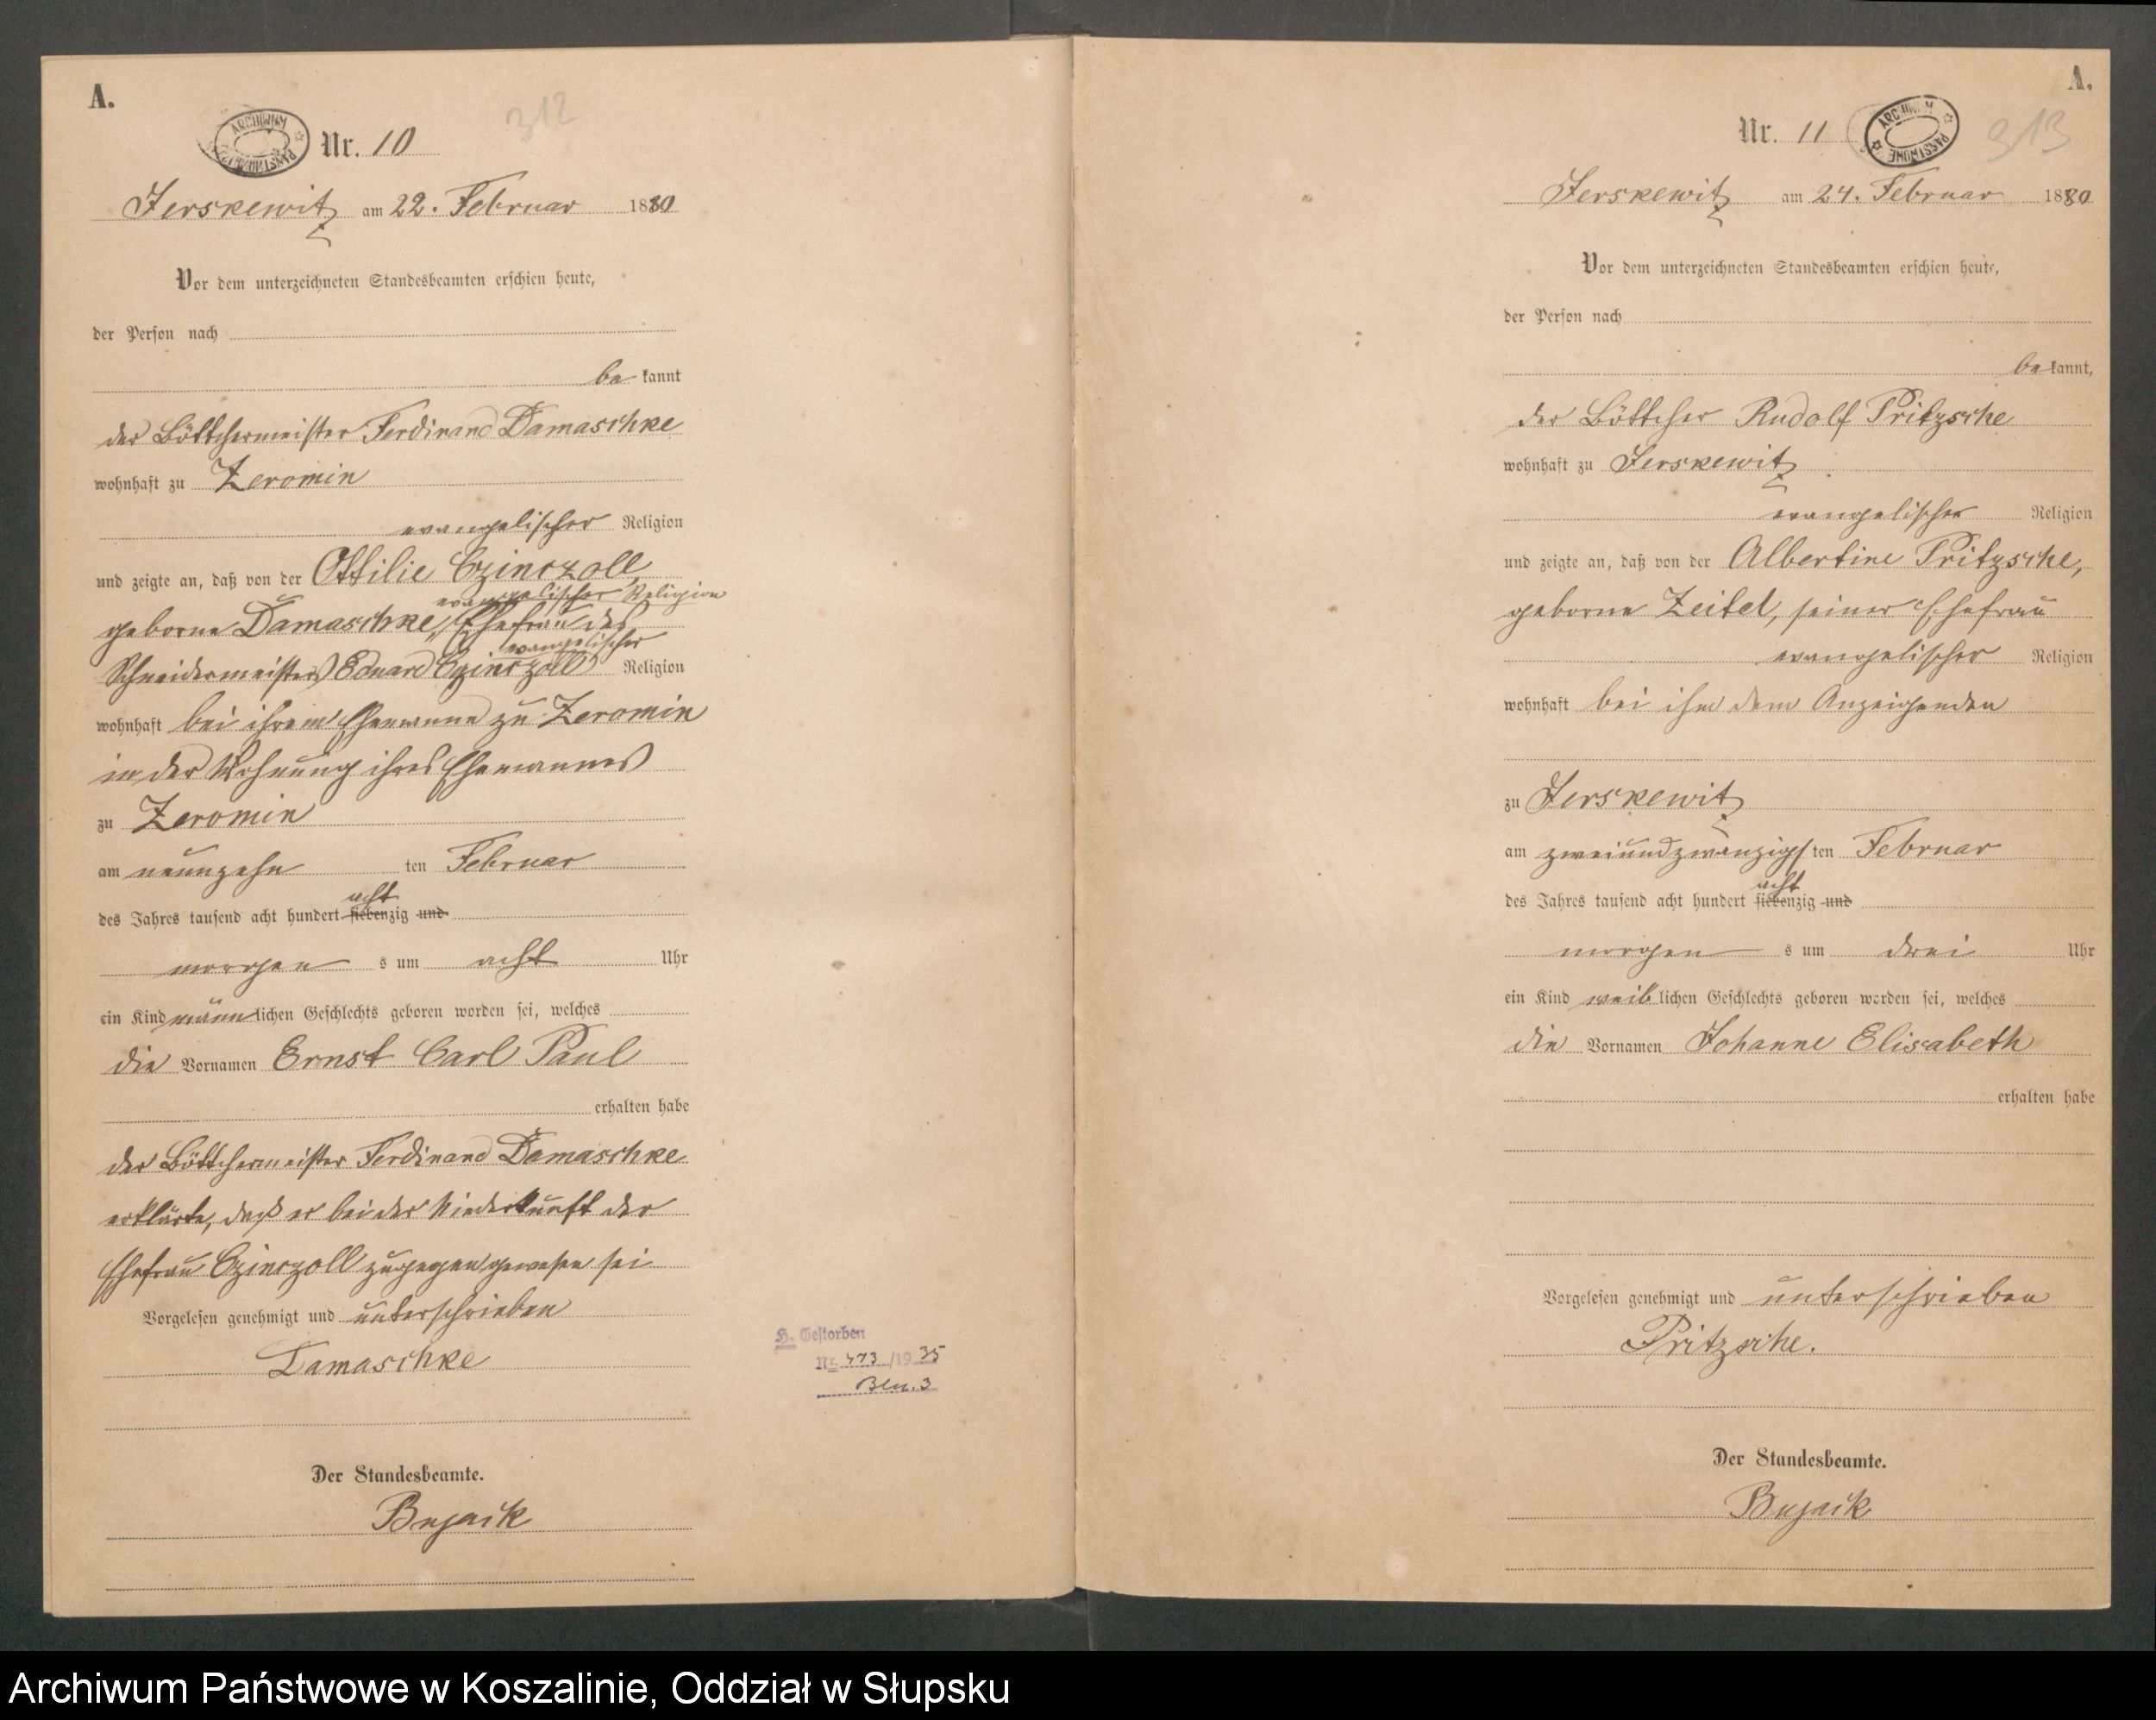 A.
312
ARCHIWUM PAŃSTWOWE
Nr. 10
Jerskewitz am 22. Februar 1880
Vor dem unterzeichneten Standesbeamten erschien heute,
der Person nach
be kannt
der Böttchermeister Ferdinand Damaschke
wohnhaft zu Zeromin
evangelischer Religion
und zeigte an, daß von der Ottilie Czinczoll,
evangelischer Religion
geborne Damaschke, Ehefrau des
evangelischer
Schneidermeisters Eduard Czinczoll Religion
wohnhaft bei ihrem Ehemanne zu Zeromin
in der Wohnung ihres Ehemannes
zu Zeromin
am neunzehn ten Februar
acht
des Jahres tausend acht hundert siebenzig und
morgen s um acht Uhr
ein Kind männ lichen Geschlechts geboren worden sei, welches
die Vornamen Ernst Carl Paul
erhalten habe
der Böttchermeister Ferdinand Damaschke
erklärte, daß er bei der Niederkunft der
Ehefrau Czinczoll zugegen gewesen sei
Vorgelesen genehmigt und unterschrieben
Damaschke
H. Gestorben
Nr. 473/1935
Bln. 3
Der Standesbeamte.
Bujack
A.
313
Nr. 11
ARCHIWUM PAŃSTWOWE
Jerskewitz am 24. Februar 1880
Vor dem unterzeichneten Standesbeamten erschien heute,
der Person nach
be kannt,
der Böttcher Rudolf Pritzsche
wohnhaft zu Jerskewitz
evangelischer Religion
und zeigte an, daß von der Albertine Pritzsche,
geborne Zeitel, seiner Ehefrau
evangelischer Religion
wohnhaft bei ihm dem Anzeigenden
zu Jerskewitz
am zweiundzwanzigs ten Februar
acht
des Jahres tausend acht hundert siebenzig und
morgen s um drei Uhr
ein Kind weib lichen Geschlechts geboren worden sei, welches
die Vornamen Johanne Elisabeth
erhalten habe
Vorgelesen genehmigt und unterschrieben
Pritzsche.
Der Standesbeamte.
Bujack
Archiwum Państwowe w Koszalinie, Oddział w Słupsku